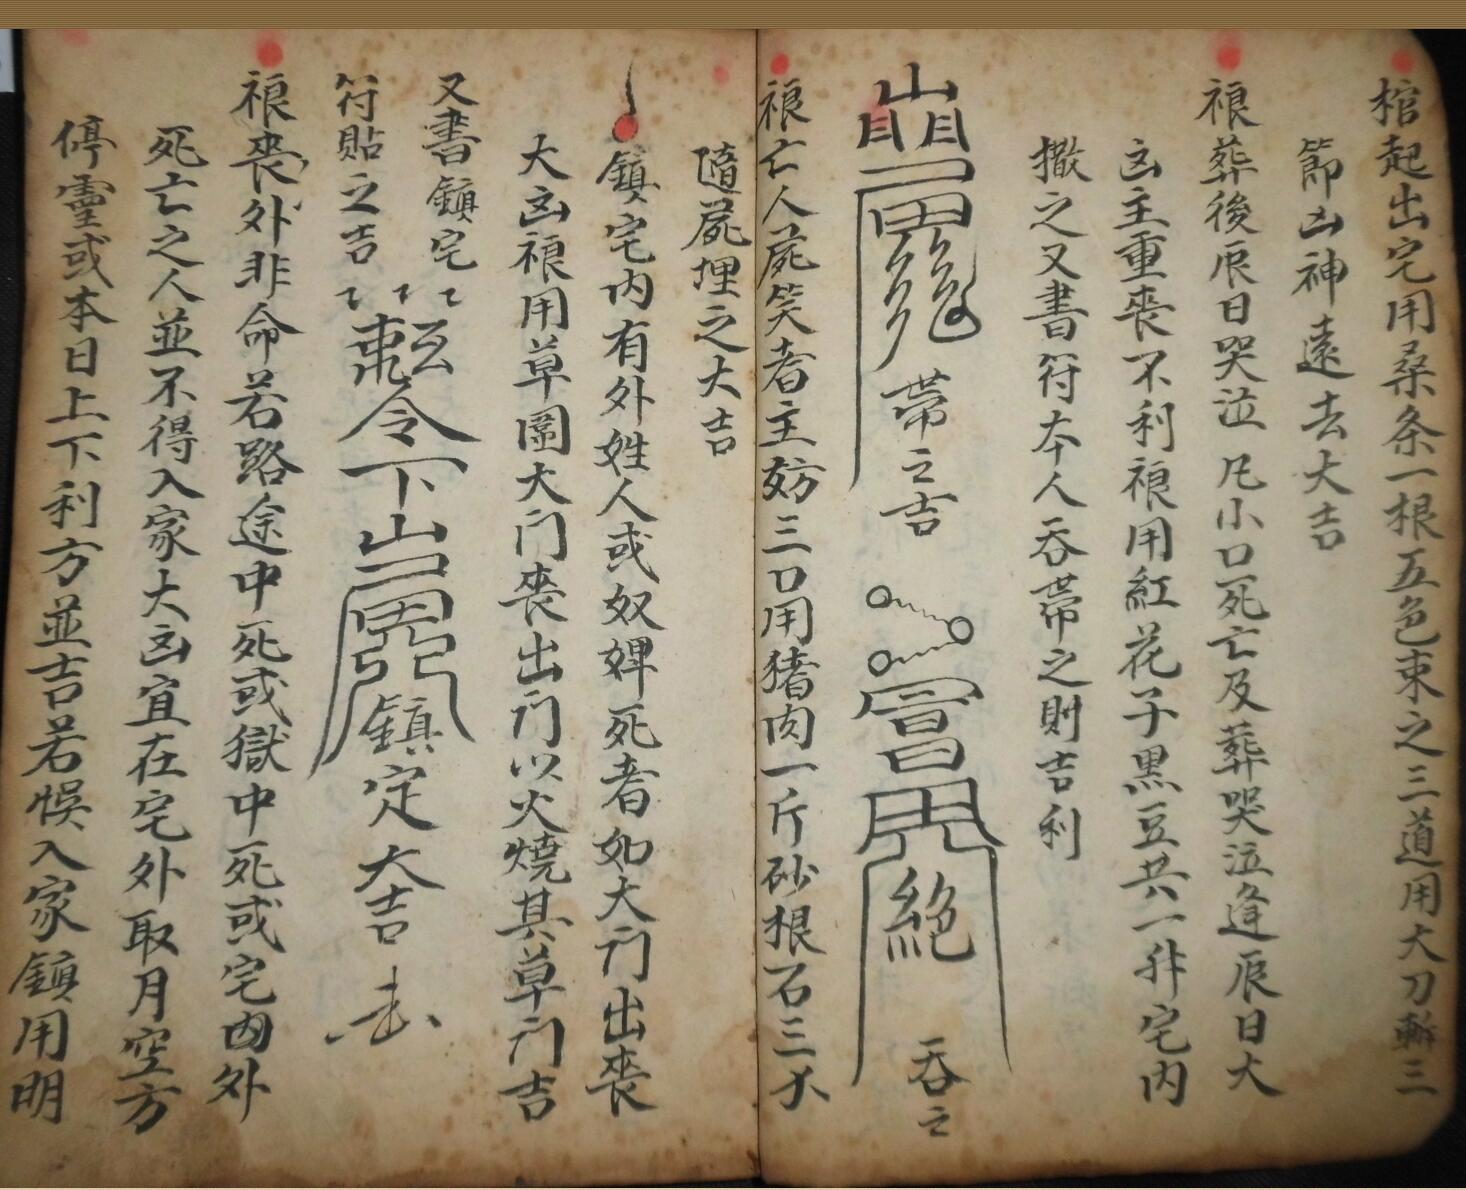 棺起出宅用桑条一根五色束之三道用大刀斬三
節凶神遠去大吉
䄄葬後辰日哭泣凡小口死亡及葬哭泣逢辰日大
凶主重喪不利䄄用紅花子黑豆共一升宅内
撒之又書符本人吞帶之則吉利
帶之吉
絕
吞之
䄄亡人屍笑者主妨三口用猪肉一斤砂根石三
隨屍埋之大吉
鎮宅内有外姓人或奴婢死者如大门出喪
大凶䄄用草圍大门喪出门以火燒其草门吉
又書鎮宅
符貼之吉
令下
鎮定大吉
䄄喪外非命若路途中死或獄中死或宅内外
死亡之人並不得入家大凶宜在宅外取月空方
停靈或本日上下利方並吉若悮入家鎮用明